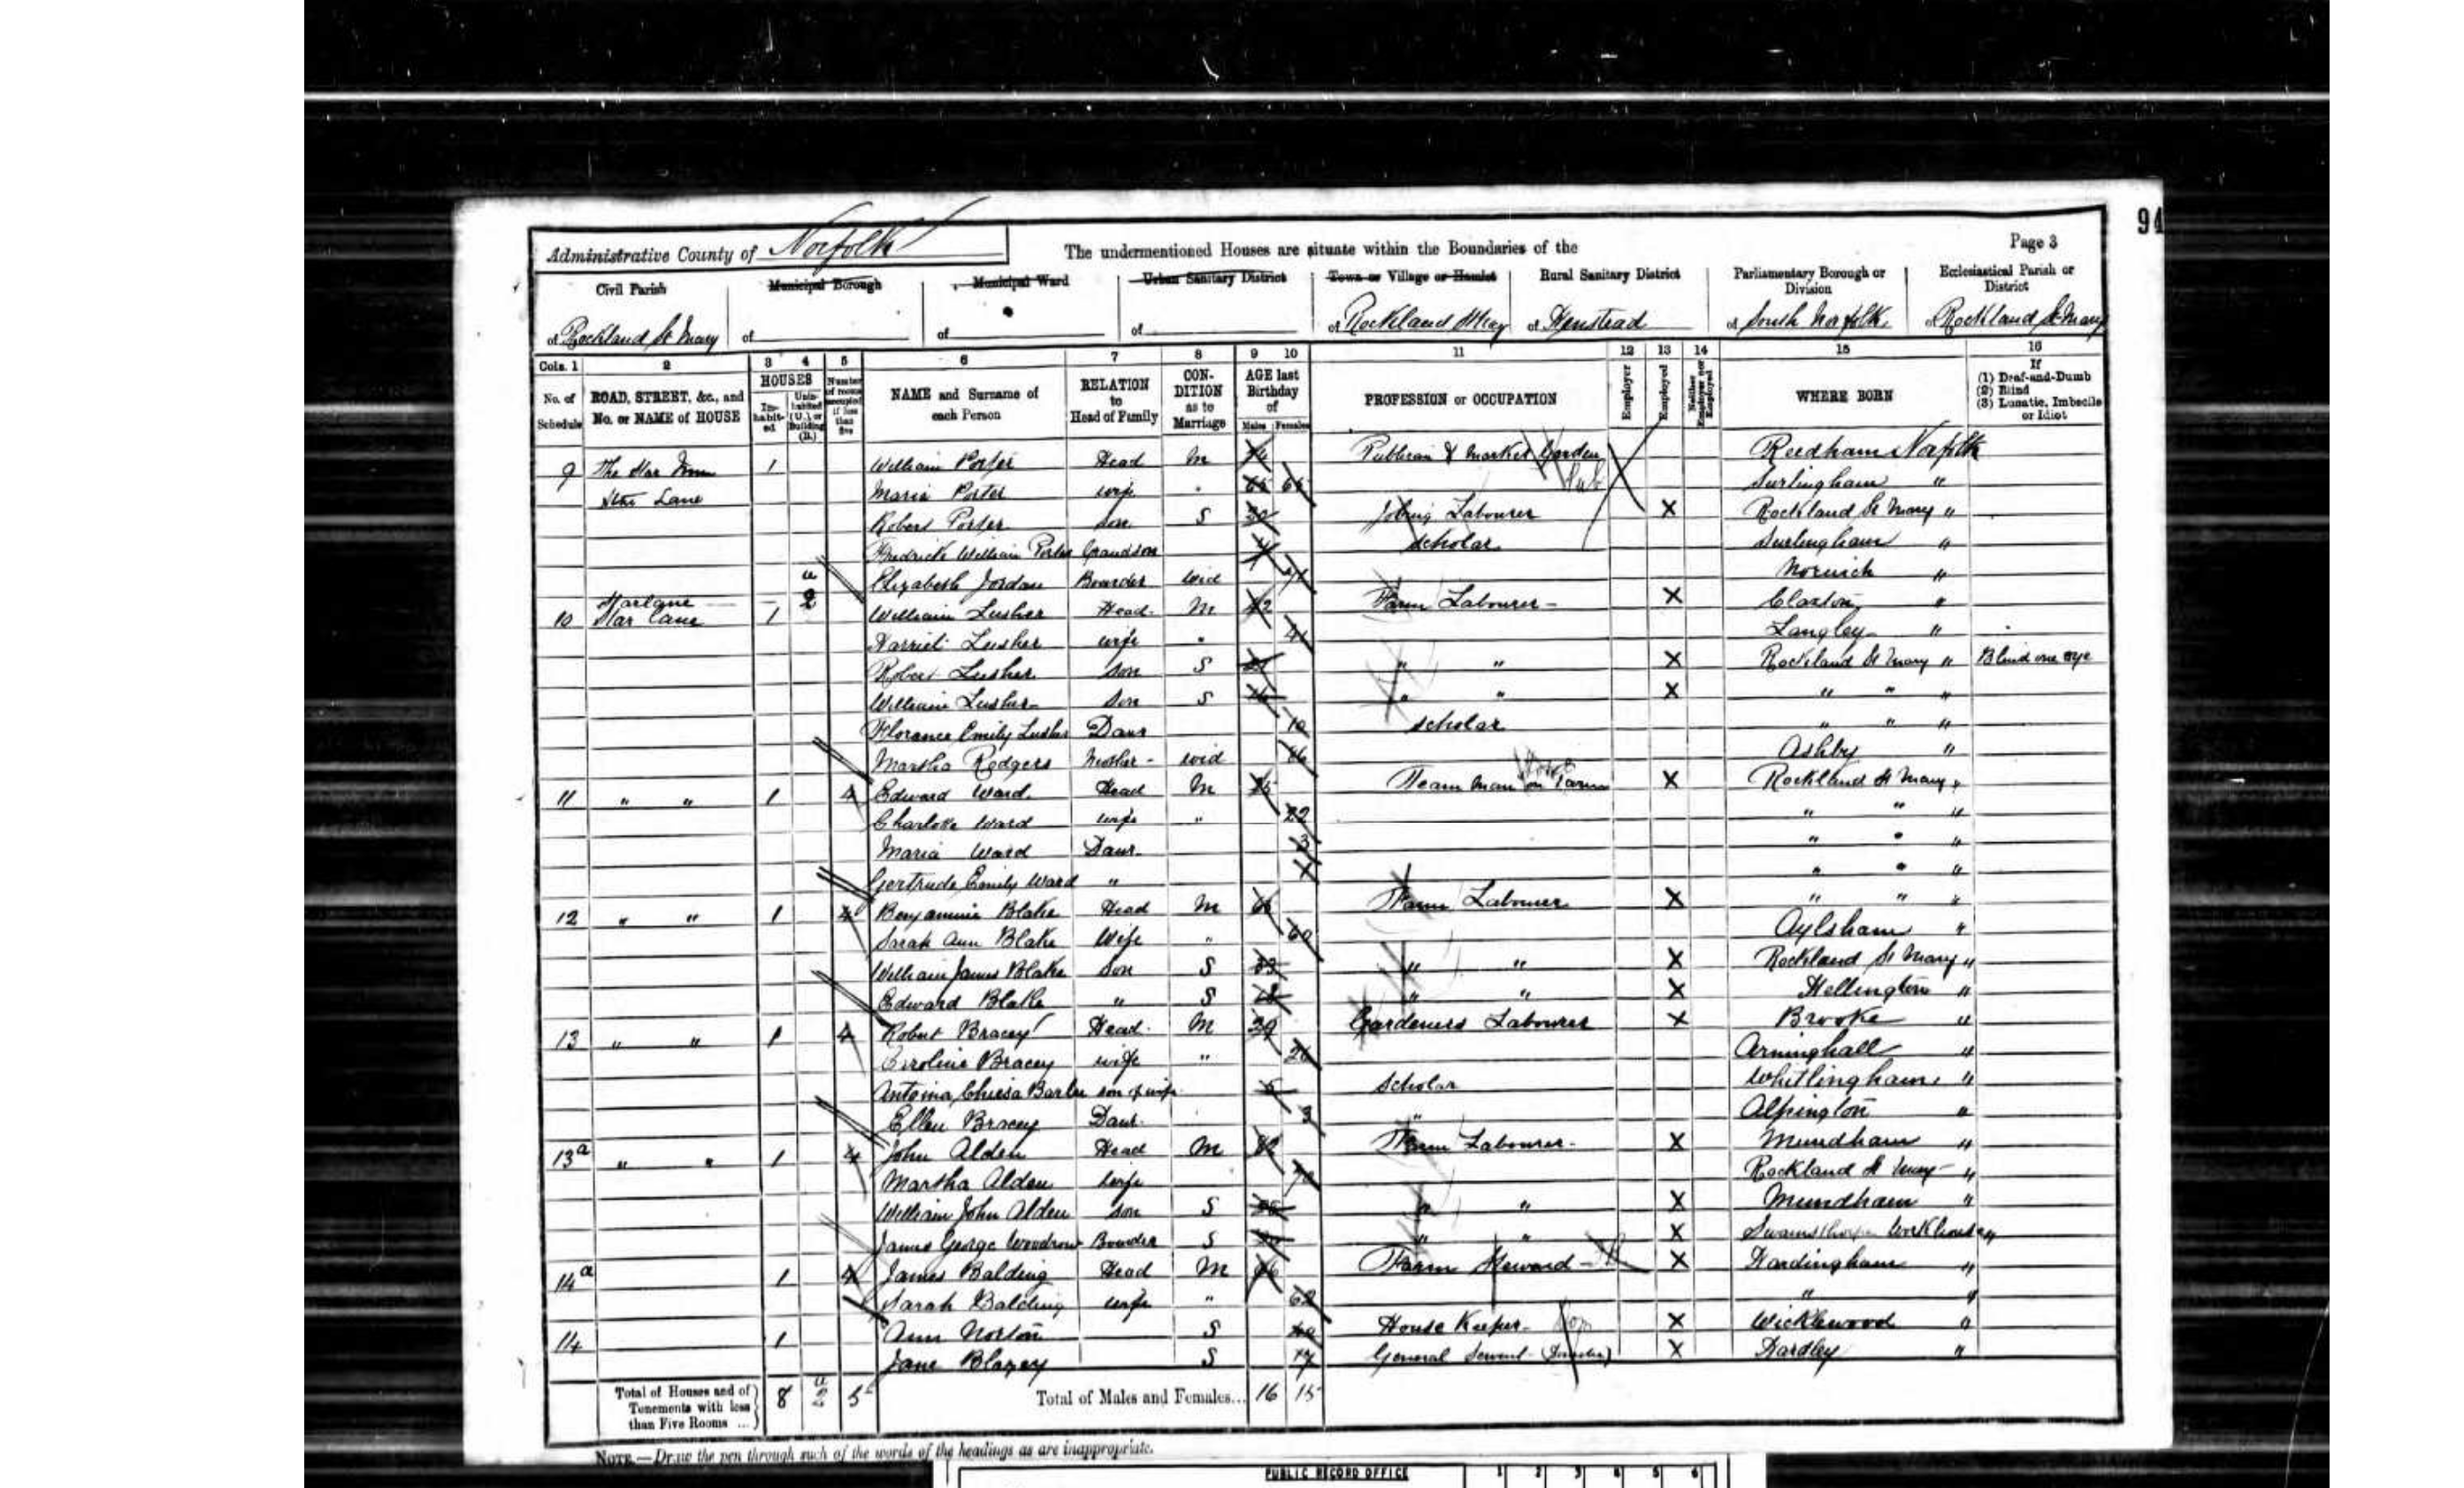 94
Administrative County of Norfolk
The undermentioned Houses are situate within the Boundaries of the
Page 3
Civil Parish Municipal Borough Municipal Ward Urban Sanitary District Town or Village or Hamlet Rural Sanitary District Parliamentary Borough or Division Ecclesiastical Parish or District
of Rockland St Mary of of of of Rockland St Mary of Henstead of South Norfolk of Rockland St Mary
Cols. 1 2 3 4 5 6 7 8 9 10 11 12 13 14 15 16
No. of Schedule ROAD, STREET, &c., and No. or NAME of HOUSE HOUSES In-habit-ed Unin-habited (U.), or Building (B.) Number of rooms occupied if less than five NAME and Surname of each Person RELATION to Head of Family CON-DITION as to Marriage AGE last Birthday of Males Females PROFESSION or OCCUPATION Employer Employed Neither Employer nor Employed WHERE BORN If (1) Deaf-and-Dumb (2) Blind (3) Lunatic, Imbecile or Idiot
9 The Star Inn 1 William Porter Head M Publican & Market Garden Reedham Norfolk
Star Lane Maria Porter wife " 65 Surlingham "
Robert Porter son S 30 Labourer X Rockland St Mary "
Fredrick William Porter Grandson scholar Surlingham "
Elizabeth Jordan Boarder Wid Norwich "
Starlane
10 Star Lane 1 William Lusher Head M 42 Farm Labourer X Claxton "
Harriet Lusher wife " 41 Langley "
Robert Lusher son S " " X Rockland St Mary " Blind one eye
William Lusher son S 16 " " X " " "
Florance Emily Lusher Daur 10 scholar " " "
Martha Redgers Mother wid 66 Ashby "
11 " " 1 4 Edward Ward Head M 25 Team Man on Farm X Rockland St Mary "
Charlotte Ward wife " 22 " " "
Maria Ward Daur 3 " " "
Gertrude Emily Ward " " " "
12 " " 1 4 Benjamin Blake Head M Farm Labourer X " " "
Sarah Ann Blake Wife " 60 Aylsham "
William James Blake son S " " X Rockland St Mary "
Edward Blake " S 18 " " X Hellington "
13 " " 1 4 Robert Bracey Head M 39 Gardeners Labourer X Brooke "
Caroline Bracey wife " Arminghall "
Antonia Chiesa Barber son of wife scholar Whitlingham "
Ellen Bracey Daur 3 " Alpington "
13a " " 1 4 John Alden Head M Farm Labourer X Mundham "
Martha Alden wife 70 Rockland St Mary "
William John Alden son S " " X Mundham "
James George Woodrow Boarder S " " X Swainsthorpe Workhouse "
14a 1 4 James Balding Head M 66 Farm Steward X Hardingham "
Sarah Balding wife " 62 " "
14 1 Ann Norton S House Keeper X Wicklewood "
Jane Blazey S General Servant (Domestic) X Yardley "
Total of Houses and of Tenements with less than Five Rooms ... 8 2 5 Total of Males and Females... 16 15
NOTE.—Draw the pen through such of the words of the headings as are inappropriate.
PUBLIC RECORD OFFICE 1 2 3 4 5 6